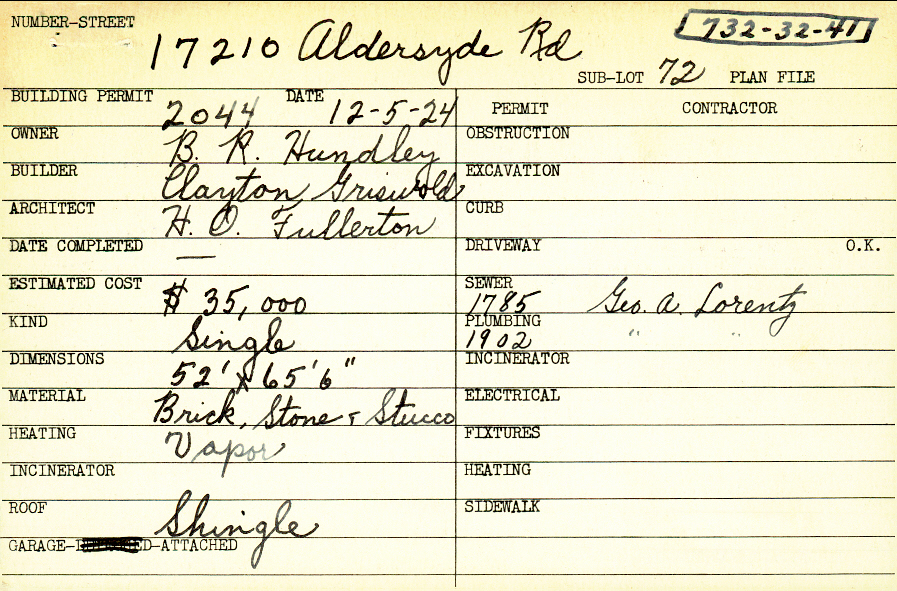 NUMBER-STREET
17210 Aldersyde Rd
732-32-41
SUB-LOT 72 PLAN FILE
BUILDING PERMIT 2044 DATE 12-5-24
PERMIT CONTRACTOR
OWNER B. R. Hundley
OBSTRUCTION
BUILDER Clayton Griswold
EXCAVATION
ARCHITECT H. O. Fullerton
CURB
DATE COMPLETED —
DRIVEWAY O.K.
ESTIMATED COST $ 35,000
SEWER 1785 Geo. A. Lorentz
KIND Single
PLUMBING 1902 " "
DIMENSIONS 52' x 65'6"
INCINERATOR
MATERIAL Brick, Stone & Stucco
ELECTRICAL
HEATING Vapor
FIXTURES
INCINERATOR
HEATING
ROOF Shingle
SIDEWALK
GARAGE-ATTACHED